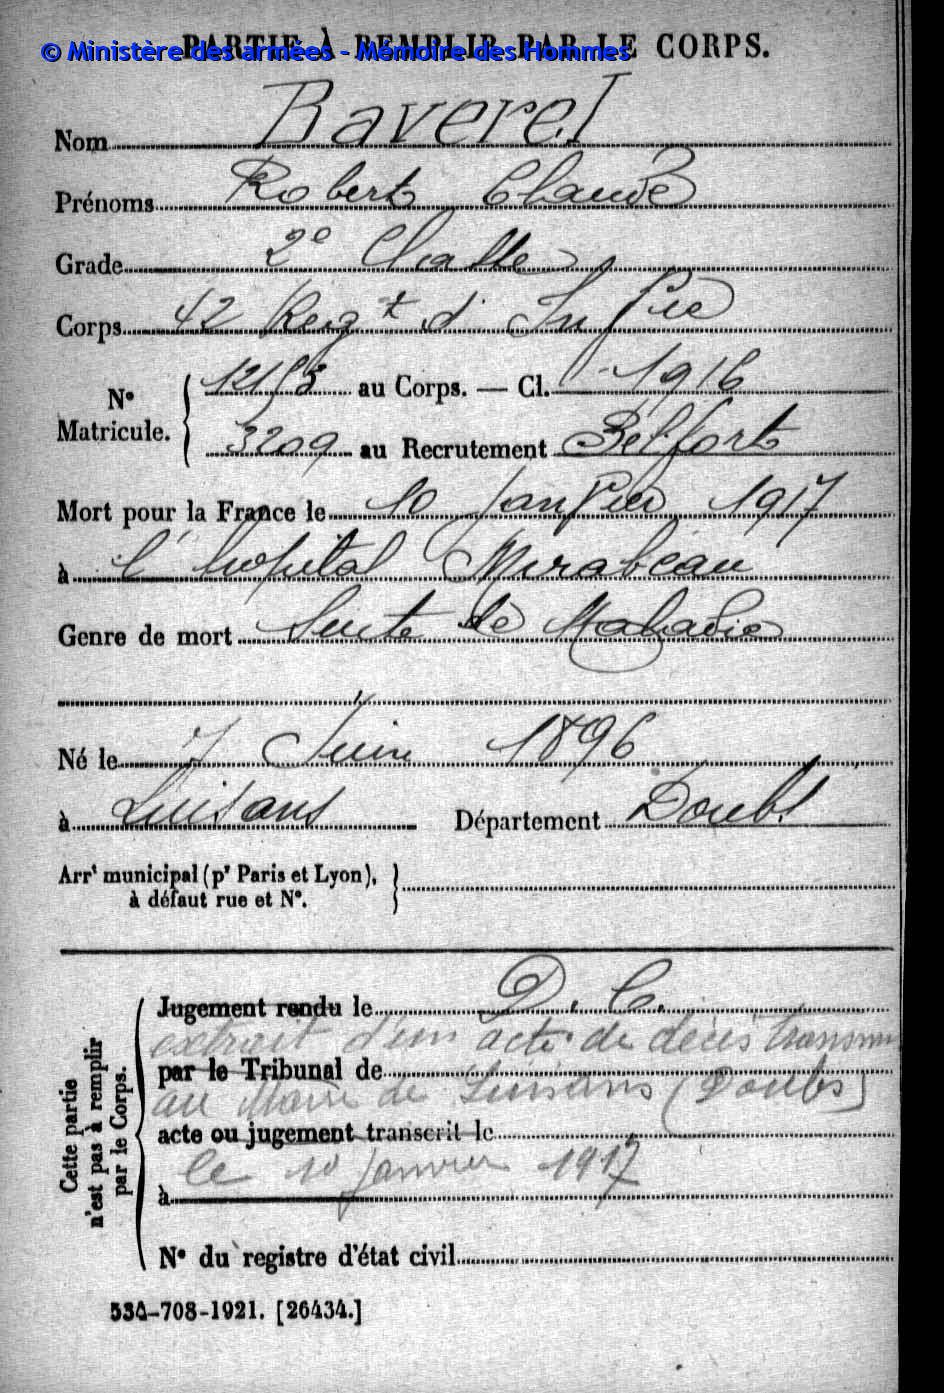 PARTIE À REMPLIR PAR LE CORPS.
© Ministère des armées - Mémoire des Hommes
Nom Baverel
Prénoms Robert Claude
Grade 2e Classe
Corps 42 Regt d' Infie
N° Matricule. 12153 au Corps. — Cl. 1916
3209 au Recrutement Belfort
Mort pour la France le 10 Janvier 1917
à l'hopital Mirabeau
Genre de mort Suite de Maladie
Né le 7 Juin 1896
à Luisans Département Doubs
Arrt municipal (pr Paris et Lyon),
à défaut rue et N°.
Cette partie
n'est pas à remplir
par le Corps.
Jugement rendu le D. C.
extrait d'un acte de décès transmis
par le Tribunal de
au Maire de Luisans (Doubs)
acte ou jugement transcrit le
le 10 janvier 1917
à
N° du registre d'état civil
534-708-1921. [26434.]